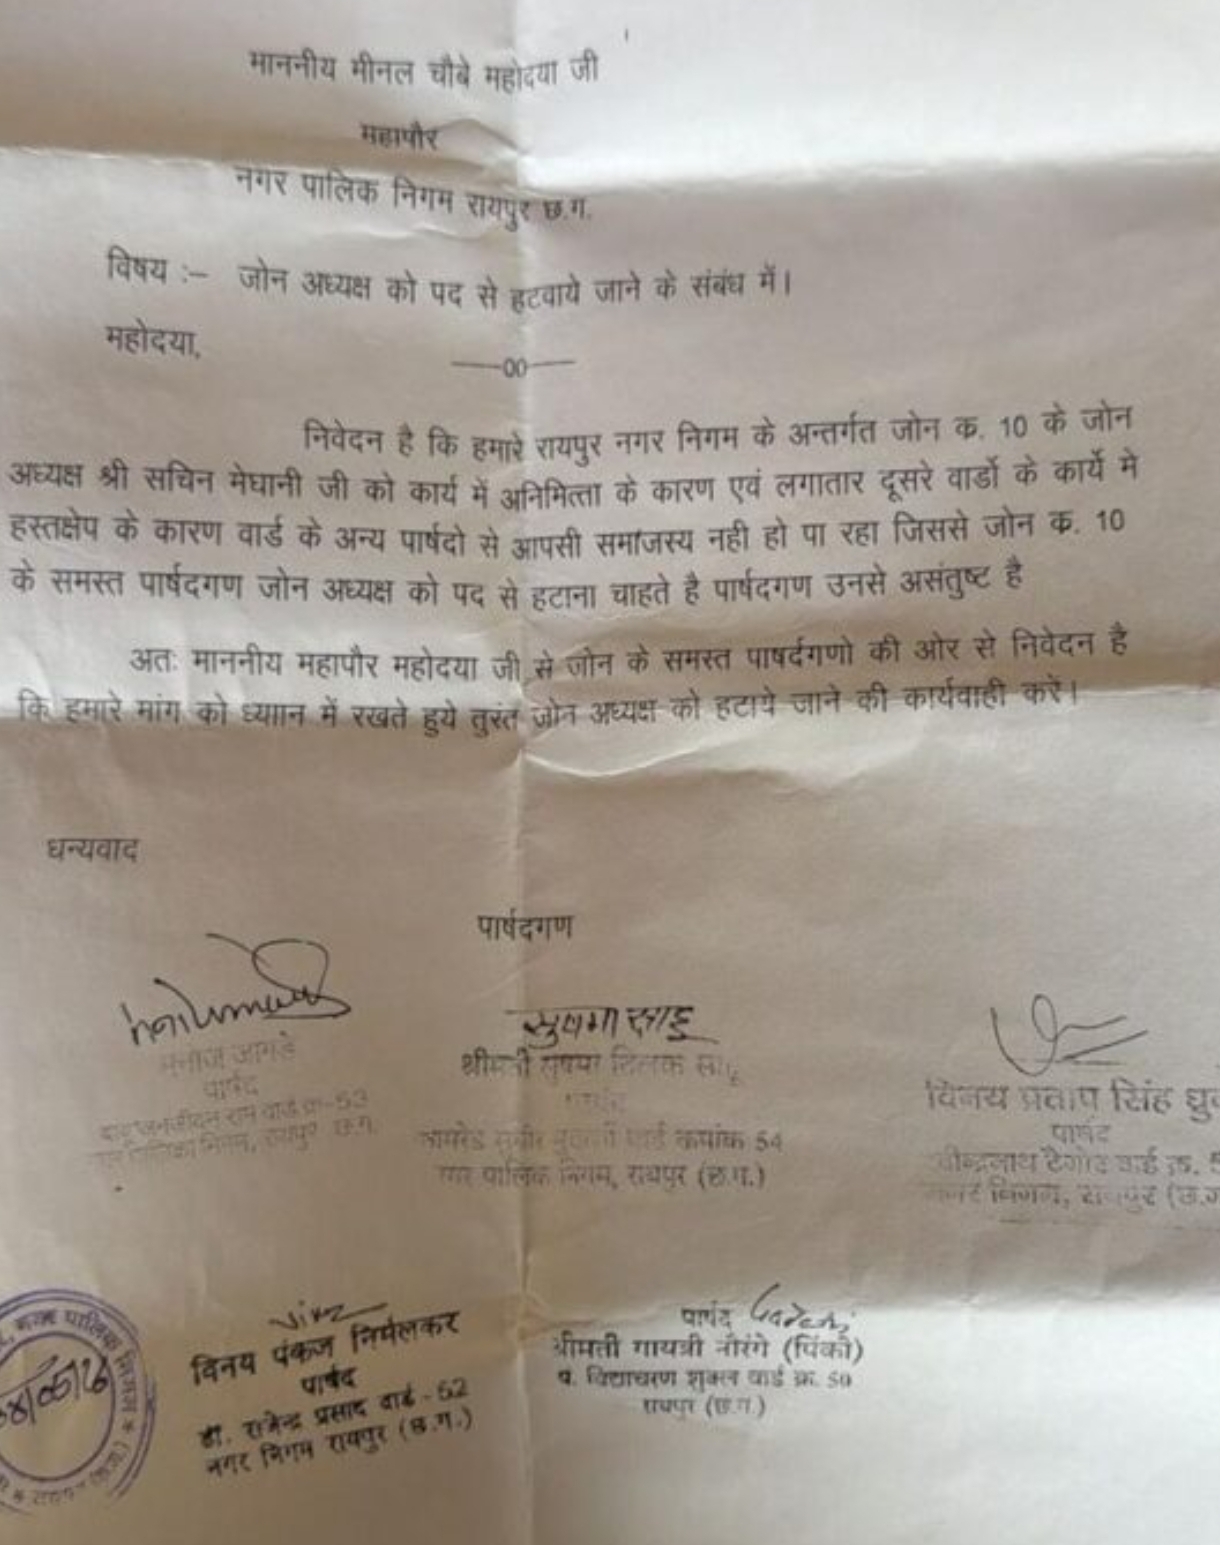 माननीय मीनल चौबे महोदया जी
महापौर
नगर पालिक निगम रायपुर छ.ग.
विषय :– जोन अध्यक्ष को पद से हटवाये जाने के संबंध में।
महोदया,
——00——
निवेदन है कि हमारे रायपुर नगर निगम के अन्तर्गत जोन क. 10 के जोन
अध्यक्ष श्री सचिन मेघानी जी को कार्य में अनिमित्ता के कारण एवं लगातार दूसरे वार्डो के कार्ये मे
हस्तक्षेप के कारण वार्ड के अन्य पार्षदो से आपसी समांजस्य नही हो पा रहा जिससे जोन क. 10
के समस्त पार्षदगण जोन अध्यक्ष को पद से हटाना चाहते है पार्षदगण उनसे असंतुष्ट है
अतः माननीय महापौर महोदया जी से जोन के समस्त पाषर्दगणो की ओर से निवेदन है
कि हमारे मांग को ध्याान में रखते हुये तुरंत जोन अध्यक्ष को हटाये जाने की कार्यवाही करें।
धन्यवाद
पार्षदगण
सुषमा साहू
मनोज जांगडे
पार्षद
बाबू जगजीवन राम वार्ड क्र-53
पालिका निगम, रायपुर छ.ग.
श्रीमती सुषमा तिलक साहू
पार्षद
कामरेड सुधीर मुखर्जी वार्ड कमांक 54
नगर पालिक निगम, रायपुर (छ.ग.)
विनय प्रताप सिंह
पार्षद
रवीन्द्रनाथ टैगोर वार्ड क्र.
नगर निगम, रायपुर (छ.ग
विनय पंकज निर्मलकर
पार्षद
डॉ. राजेन्द्र प्रसाद वार्ड - 52
नगर निगम रायपुर (छ.ग.)
पार्षद
श्रीमती गायत्री नौरंगे (पिंकी)
पं. विद्याचरण शुक्ल वार्ड क्र. 50
रायपुर (छ.ग.)
नगर पालिक निगम